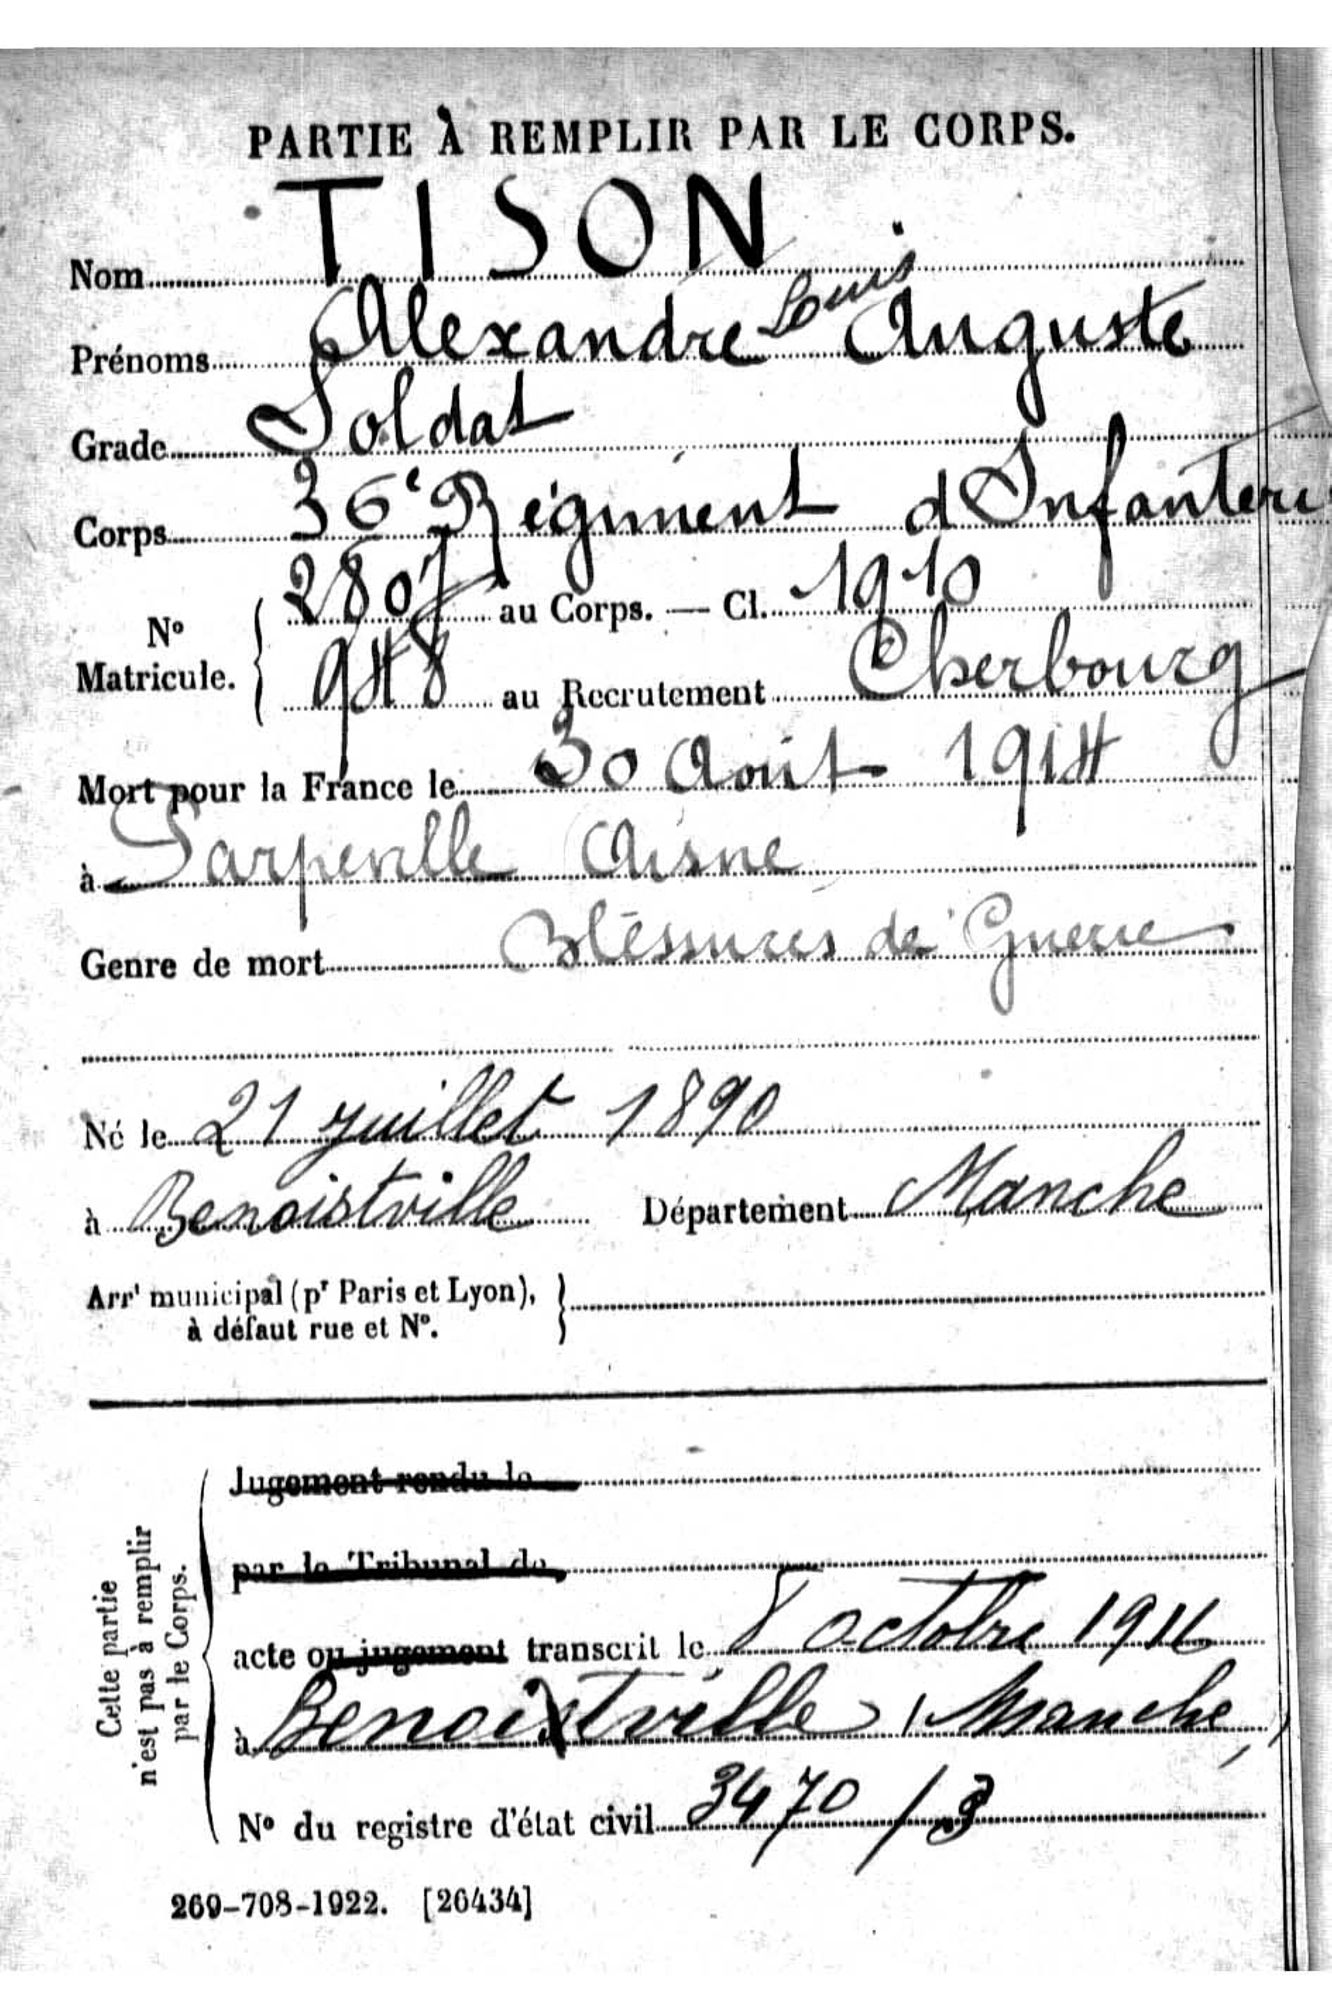 PARTIE À REMPLIR PAR LE CORPS.
Nom TISON
Prénoms Alexandre Louis Auguste
Grade Soldat
Corps 36e Régiment d'Infanterie
2807 au Corps. — Cl. 1910
No
Matricule.
948 au Recrutement Cherbourg
Mort pour la France le 30 Août 1914
à Parpeville Aisne
Genre de mort Bléssures de Guerre
Né le 21 juillet 1890
à Benoistville Département Manche
Arrt municipal (pr Paris et Lyon),
à défaut rue et No.
Cette partie
n'est pas à remplir
par le Corps.
Jugement rendu le
par le Tribunal de
acte ou jugement transcrit le 8 octobre 1916
à Benoistville (Manche)
No du registre d'état civil 3470 / 3
269-708-1922. [26434]